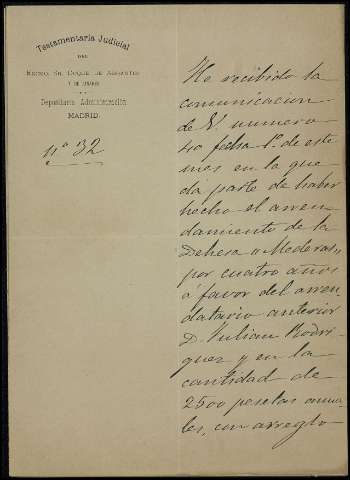 Testamentaría Judicial
DEL
EXCMO. SR. DUQUE DE ABRANTES
Y DE LINARES
Depositaría Administración
MADRID.
nº 32
He recibido la
comunicacion
de V. numero
40 fecha 1º de este
mes en la que
dá parte de haber
hecho el arren
damiento de la
Dehesa "Mederas"
por cuatro años
á favor del arren
datario anterior
D. Julian Rodri
guez y en la
cantidad de
2500 pesetas anua
les, con arreglo